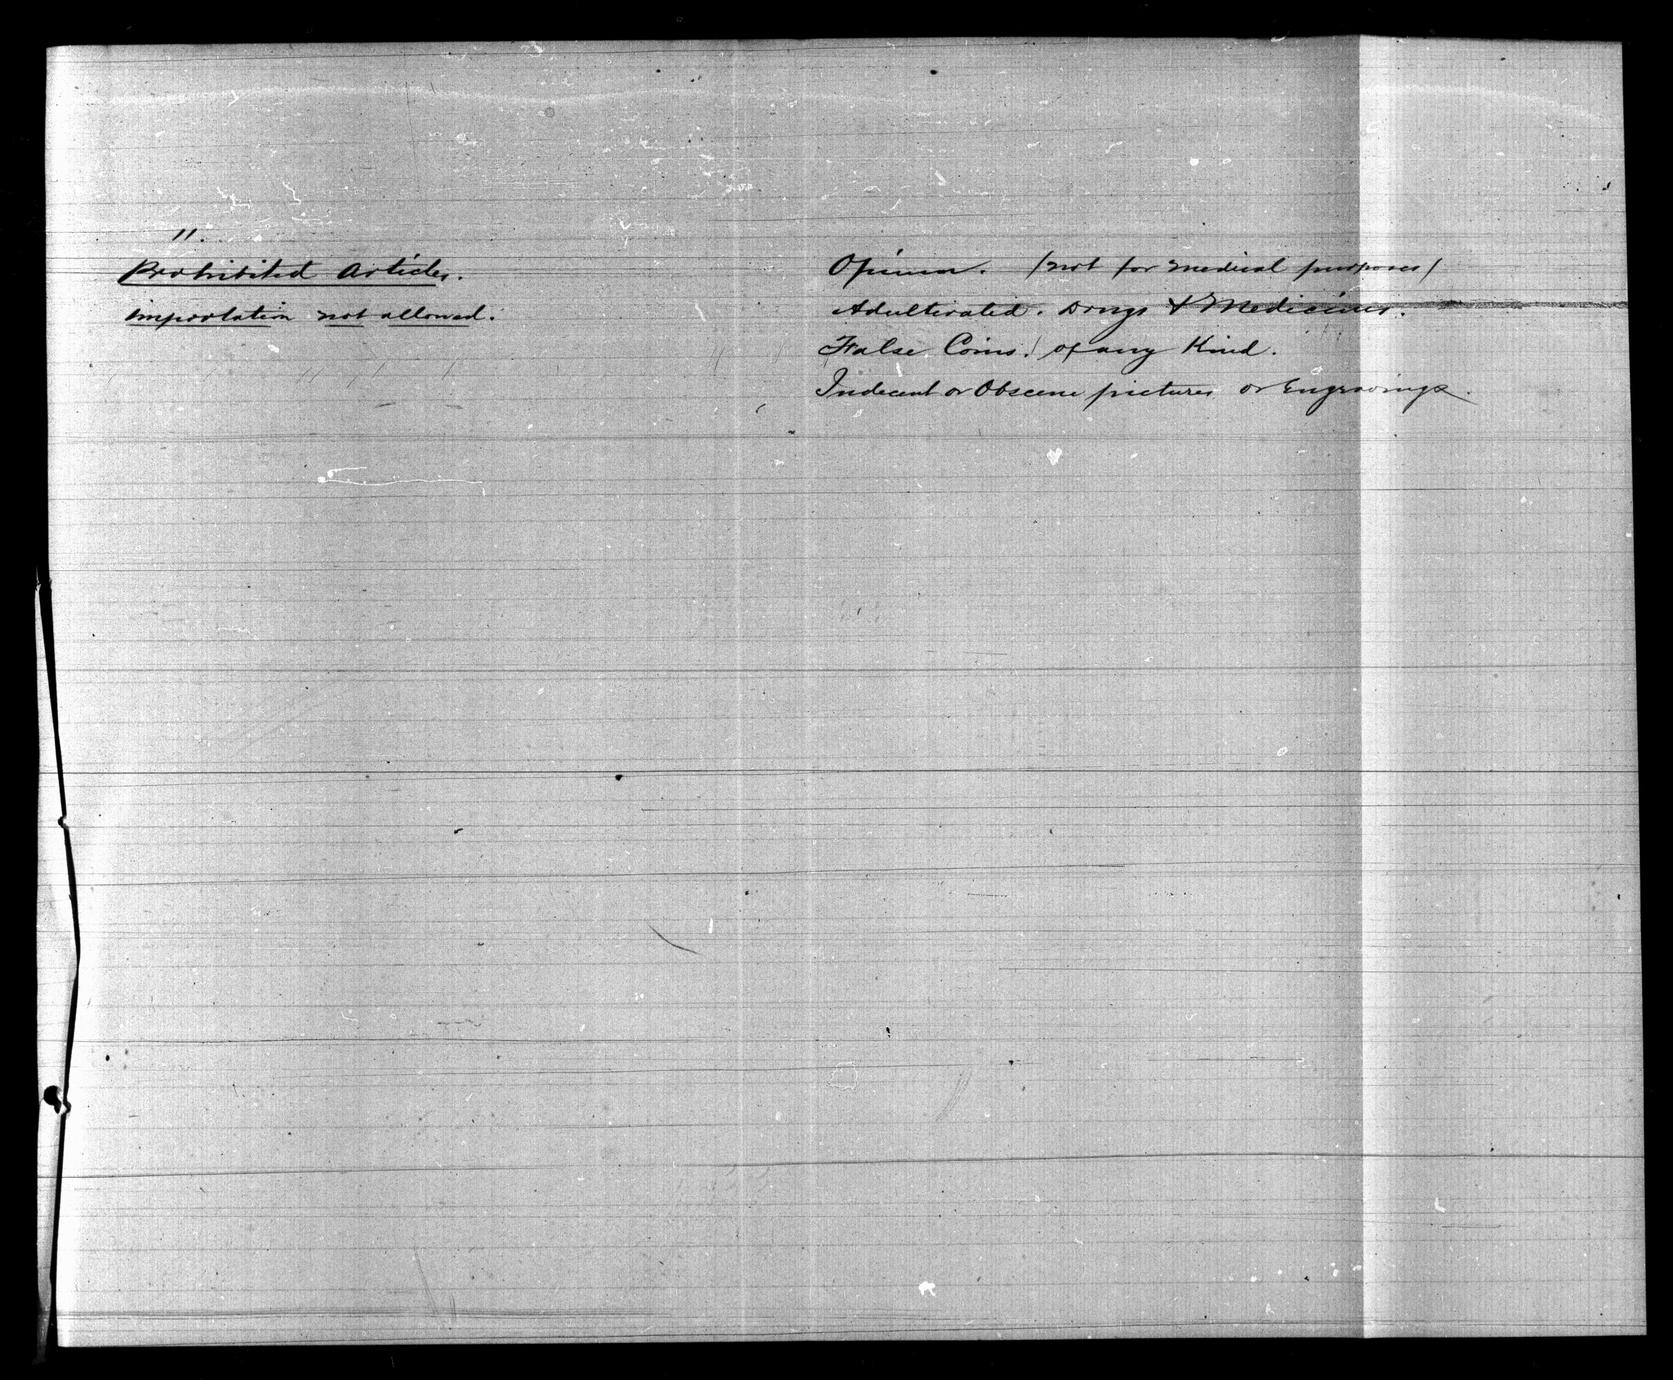 11.
Prohibited Articles.
importation not allowed.
Opium. (not for medical purposes)
Adulterated. Drugs & Medicines.
False Coins. of any Kind.
Indecent or Obscene pictures or Engravings.